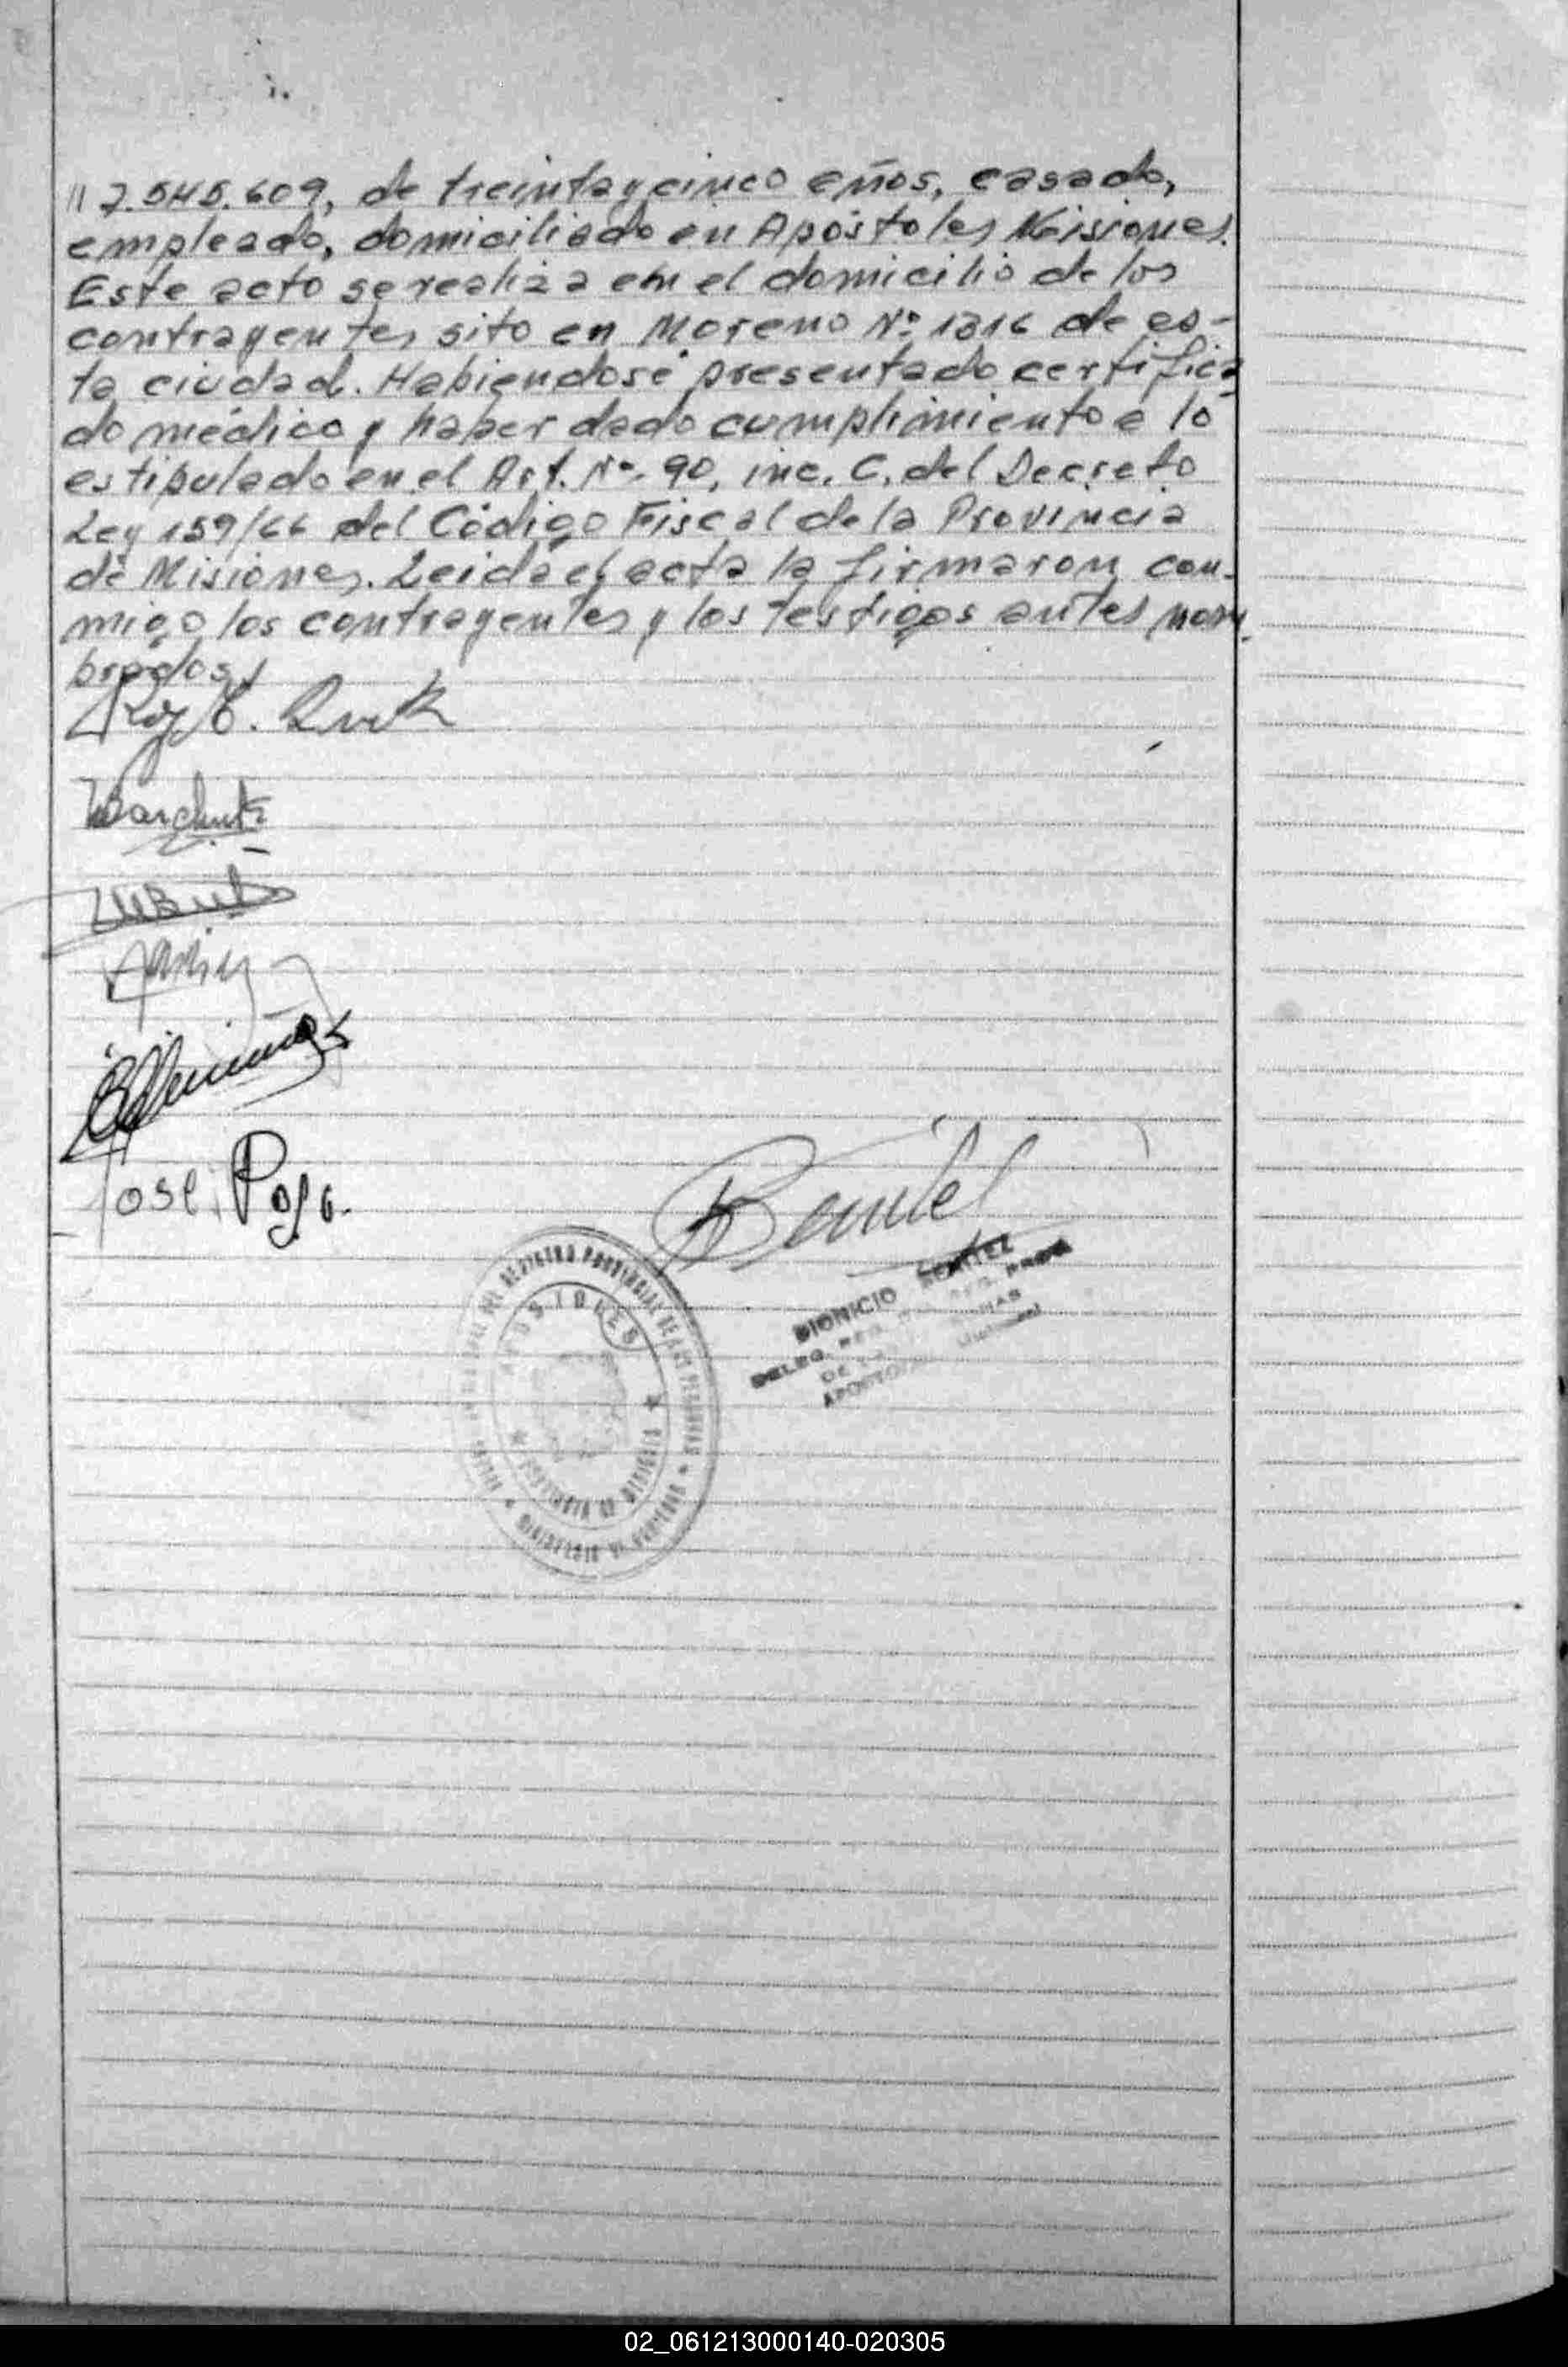 // 7.545.609, de treintaycinco años, casado,
empleado, domiciliado en Apóstoles Misiones.
Este acto se realiza en el domicilio de los
contrayentes sito en Moreno Nº 1316 de es-
ta ciudad. Habiendose presentado certifica
do médico y haber dado cumplimiento a lo
estipulado en el Art. Nº 90, inc. C. del Decreto
Ley 159/66 del Código Fiscal de la Provincia
de Misiones. Leida el acta la firmaron con-
migo los contrayentes y los testigos antes nom
brados.
José
REGISTRO PROVINCIAL DE LAS PERSONAS
APOSTOLES
DIONICIO BENITEZ
DELEG.
APOSTO
02_061213000140-020305